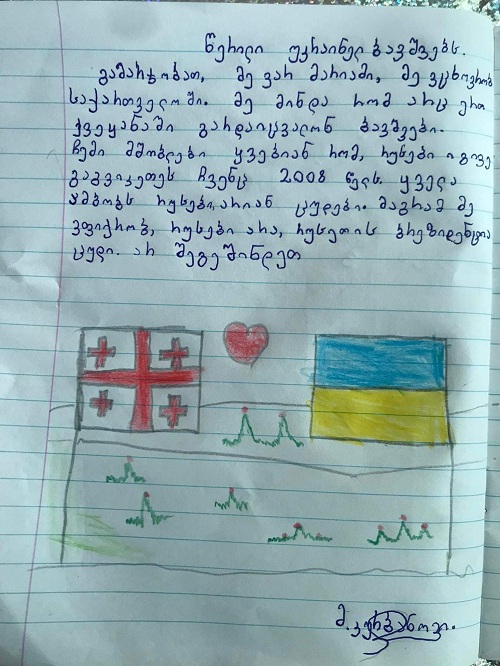 წერილი უკრაინელ ბავშვებს.
გამარჯობათ, მე ვარ მარიამი, მე ვცხოვრობ
საქართველოში. მე მინდა რომ არც ერთ
ქვეყანაში გარდაიცვალონ ბავშვები.
ჩემი მშობლები ყვებიან რომ, რუსები იგივე
გაგვიკეთეს ჩვენც 2008 წელს. ყველა
ამბობს რუსები, არიან ცუდები. მაგრამ მე
ვფიქრობ, რუსები არა, რუსეთის პრეზიდენტია
ცუდი. არ შეგეშინდეთ
მ. კურბანოვი.